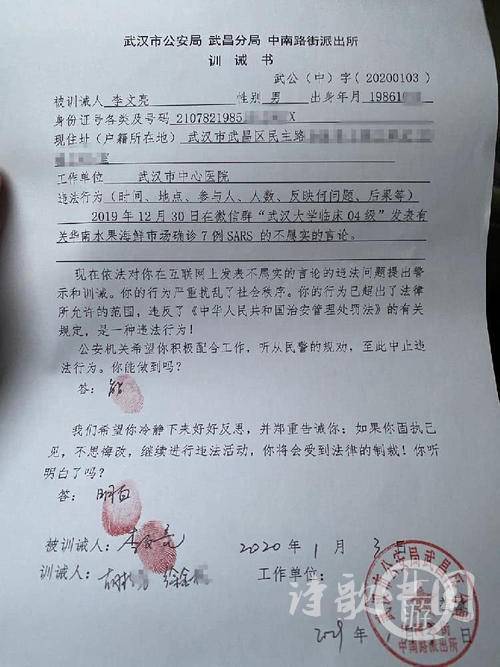 武汉市公安局 武昌分局 中南路街派出所
训 诫 书
武公（中）字（20200103）
被训诫人 李文亮 性别 男 出身年月 19861
身份证号各类及号码 2107821985 X
现住址（户籍所在地） 武汉市武昌区民主路
工作单位 武汉市中心医院
违法行为（时间、地点、参与人、人数、反映何问题、后果等）
2019年12月30日在微信群“武汉大学临床04级”发表有
关华南水果海鲜市场确诊7例SARS的不属实的言论。
现在依法对你在互联网上发表不属实的言论的违法问题提出警
示和训诫。你的行为严重扰乱了社会秩序。你的行为已超出了法律
所允许的范围，违反了《中华人民共和国治安管理处罚法》的有关
规定，是一种违法行为！
公安机关希望你积极配合工作，听从民警的规劝，至此中止违
法行为。你能做到吗？
答：能
我们希望你冷静下来好好反思，并郑重告诫你：如果你固执己
见，不思悔改，继续进行违法活动，你将会受到法律的制裁！你听
明白了吗？
答：明白
被训诫人：李文亮 2020年1月3号
训诫人： 胡 徐金 工作单位：
年1月 日
公安局武昌分局
中南路派出所
诗歌中国
游